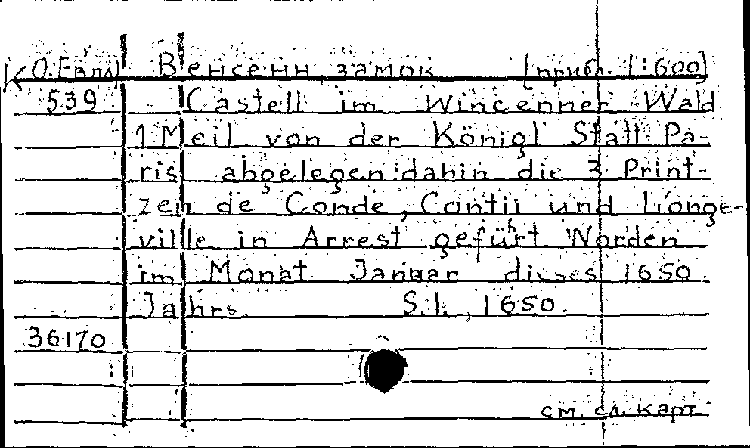 К О.Евро Венсенн, замок [приб. 1:600]
539 Castell im Wincenner Wald
1 Meil von der Königl Statt Pa-
ris abgelegen: dahin die 3 Print-
zen de Conde, Contij und Longe-
ville in Arrest gefürt Worden
im Monat Januar dieses 1650
Jahrs. S.l., 1650.
36170
см. сл. карт.